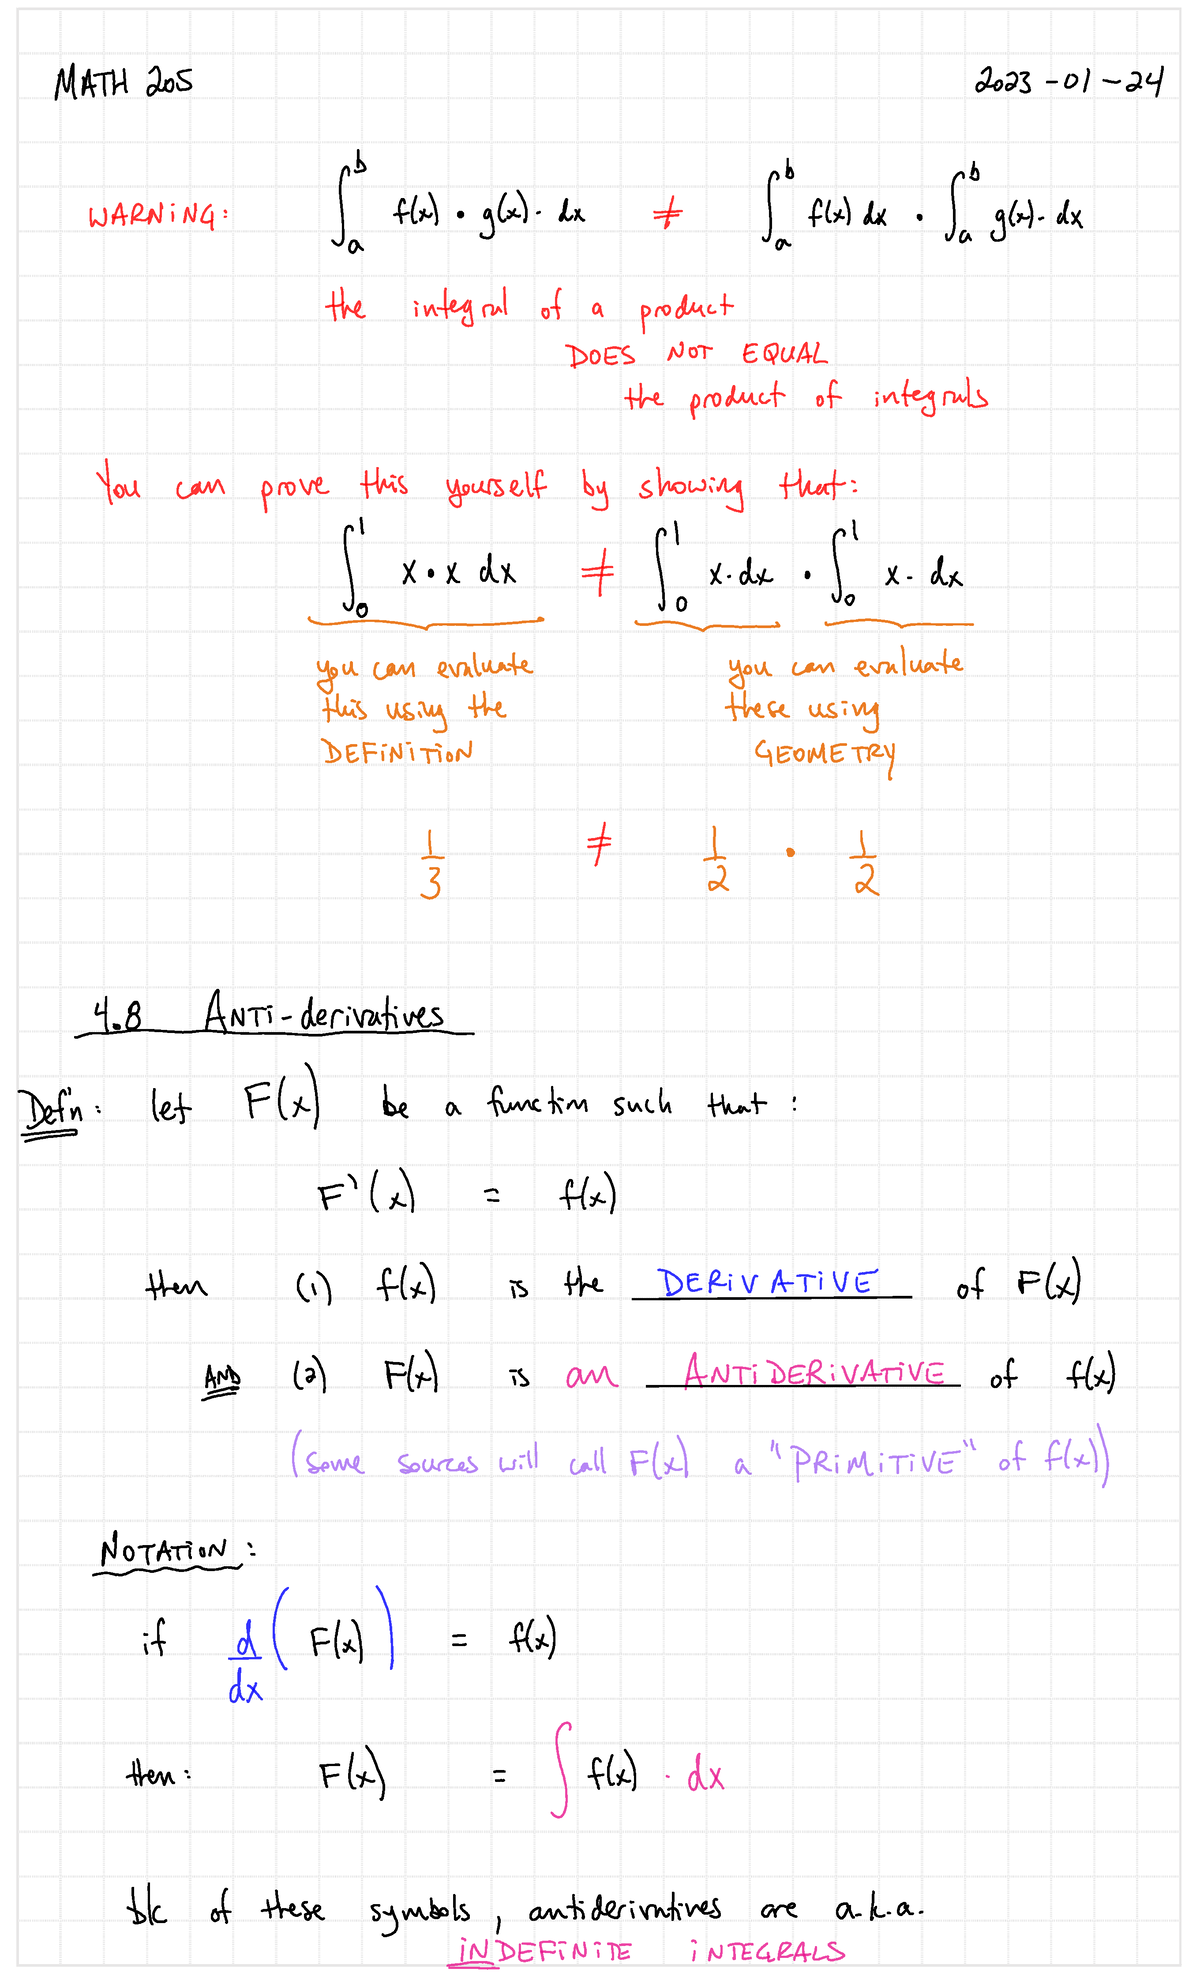 MATH 205 2023-01-24
WARNING: ∫_a^b f(x) • g(x) · dx ≠ ∫_a^b f(x) dx • ∫_a^b g(x) · dx
the integral of a product
DOES NOT EQUAL
the product of integrals
You can prove this yourself by showing that:
∫_0^1 x • x dx ≠ ∫_0^1 x · dx • ∫_0^1 x · dx
you can evaluate you can evaluate
this using the these using
DEFINITION GEOMETRY
1/3 ≠ 1/2 • 1/2
4.8 ANTI-derivatives
Def'n: let F(x) be a function such that:
F'(x) = f(x)
then (1) f(x) is the DERIVATIVE of F(x)
AND (2) F(x) is an ANTIDERIVATIVE of f(x)
(some sources will call F(x) a "PRIMITIVE" of f(x))
NOTATION:
if d/dx (F(x)) = f(x)
then: F(x) = ∫ f(x) · dx
b/c of these symbols, antiderivatives are a.k.a.
INDEFINITE INTEGRALS